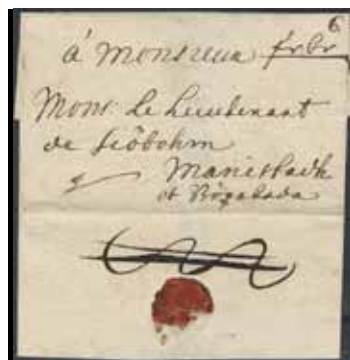 6
à Monsieur frbr
Mons: le Lieutenant
de Siöbohm
Mariestadh
et Bögatada